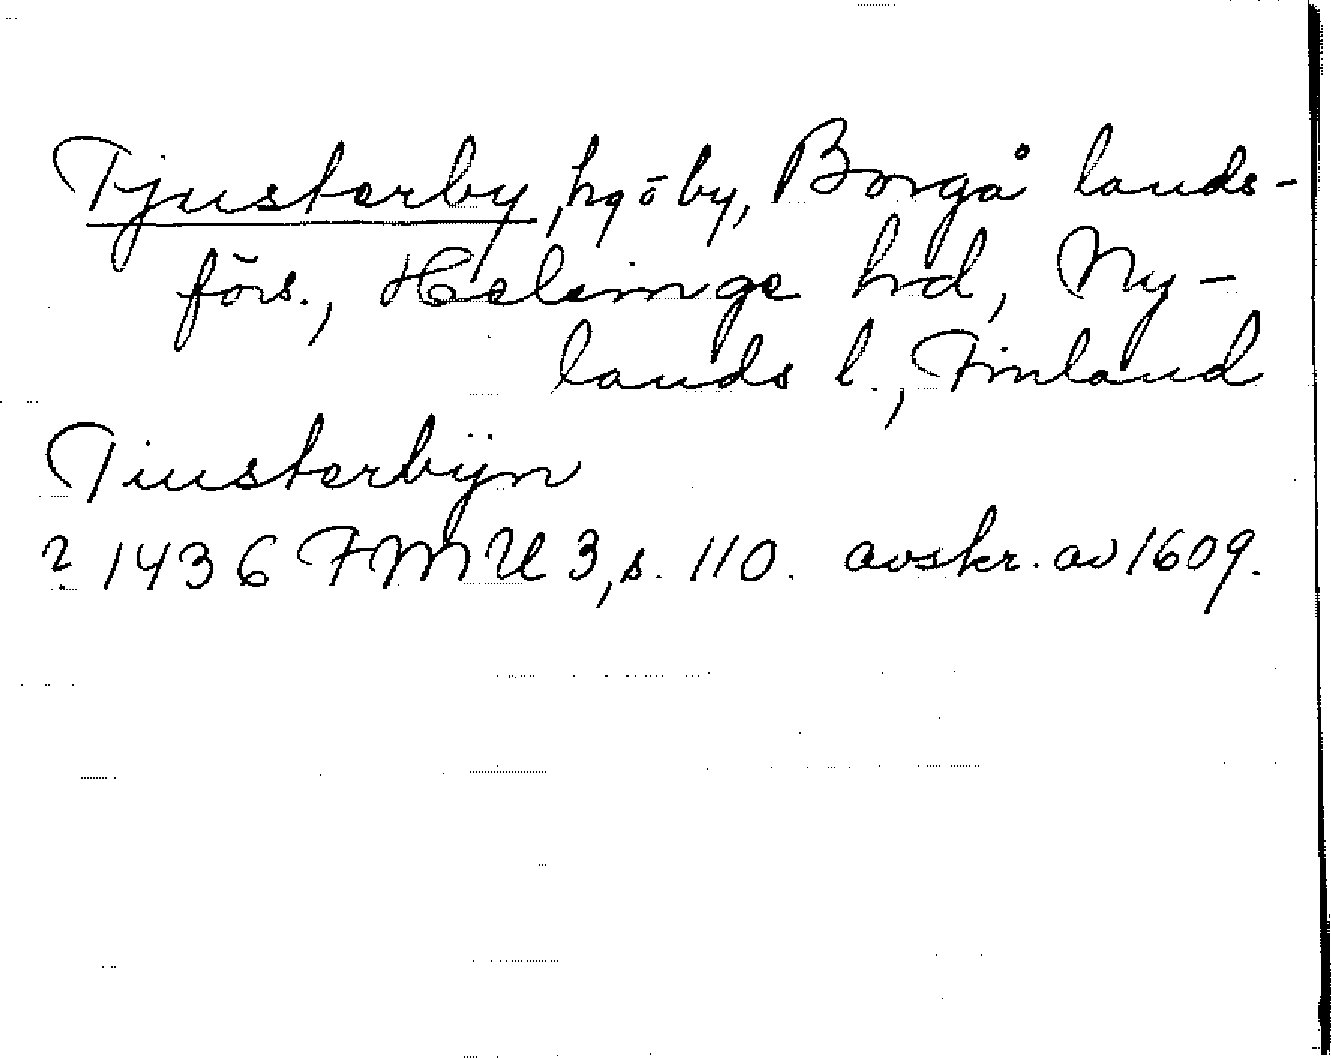 Tjusterby, hg ō by, Borgå lands-
förs., Helsinge hrd, Ny-
lands l., Finland
Tiusterbÿn
? 1436 FMU 3, s. 110. avskr. av 1609.